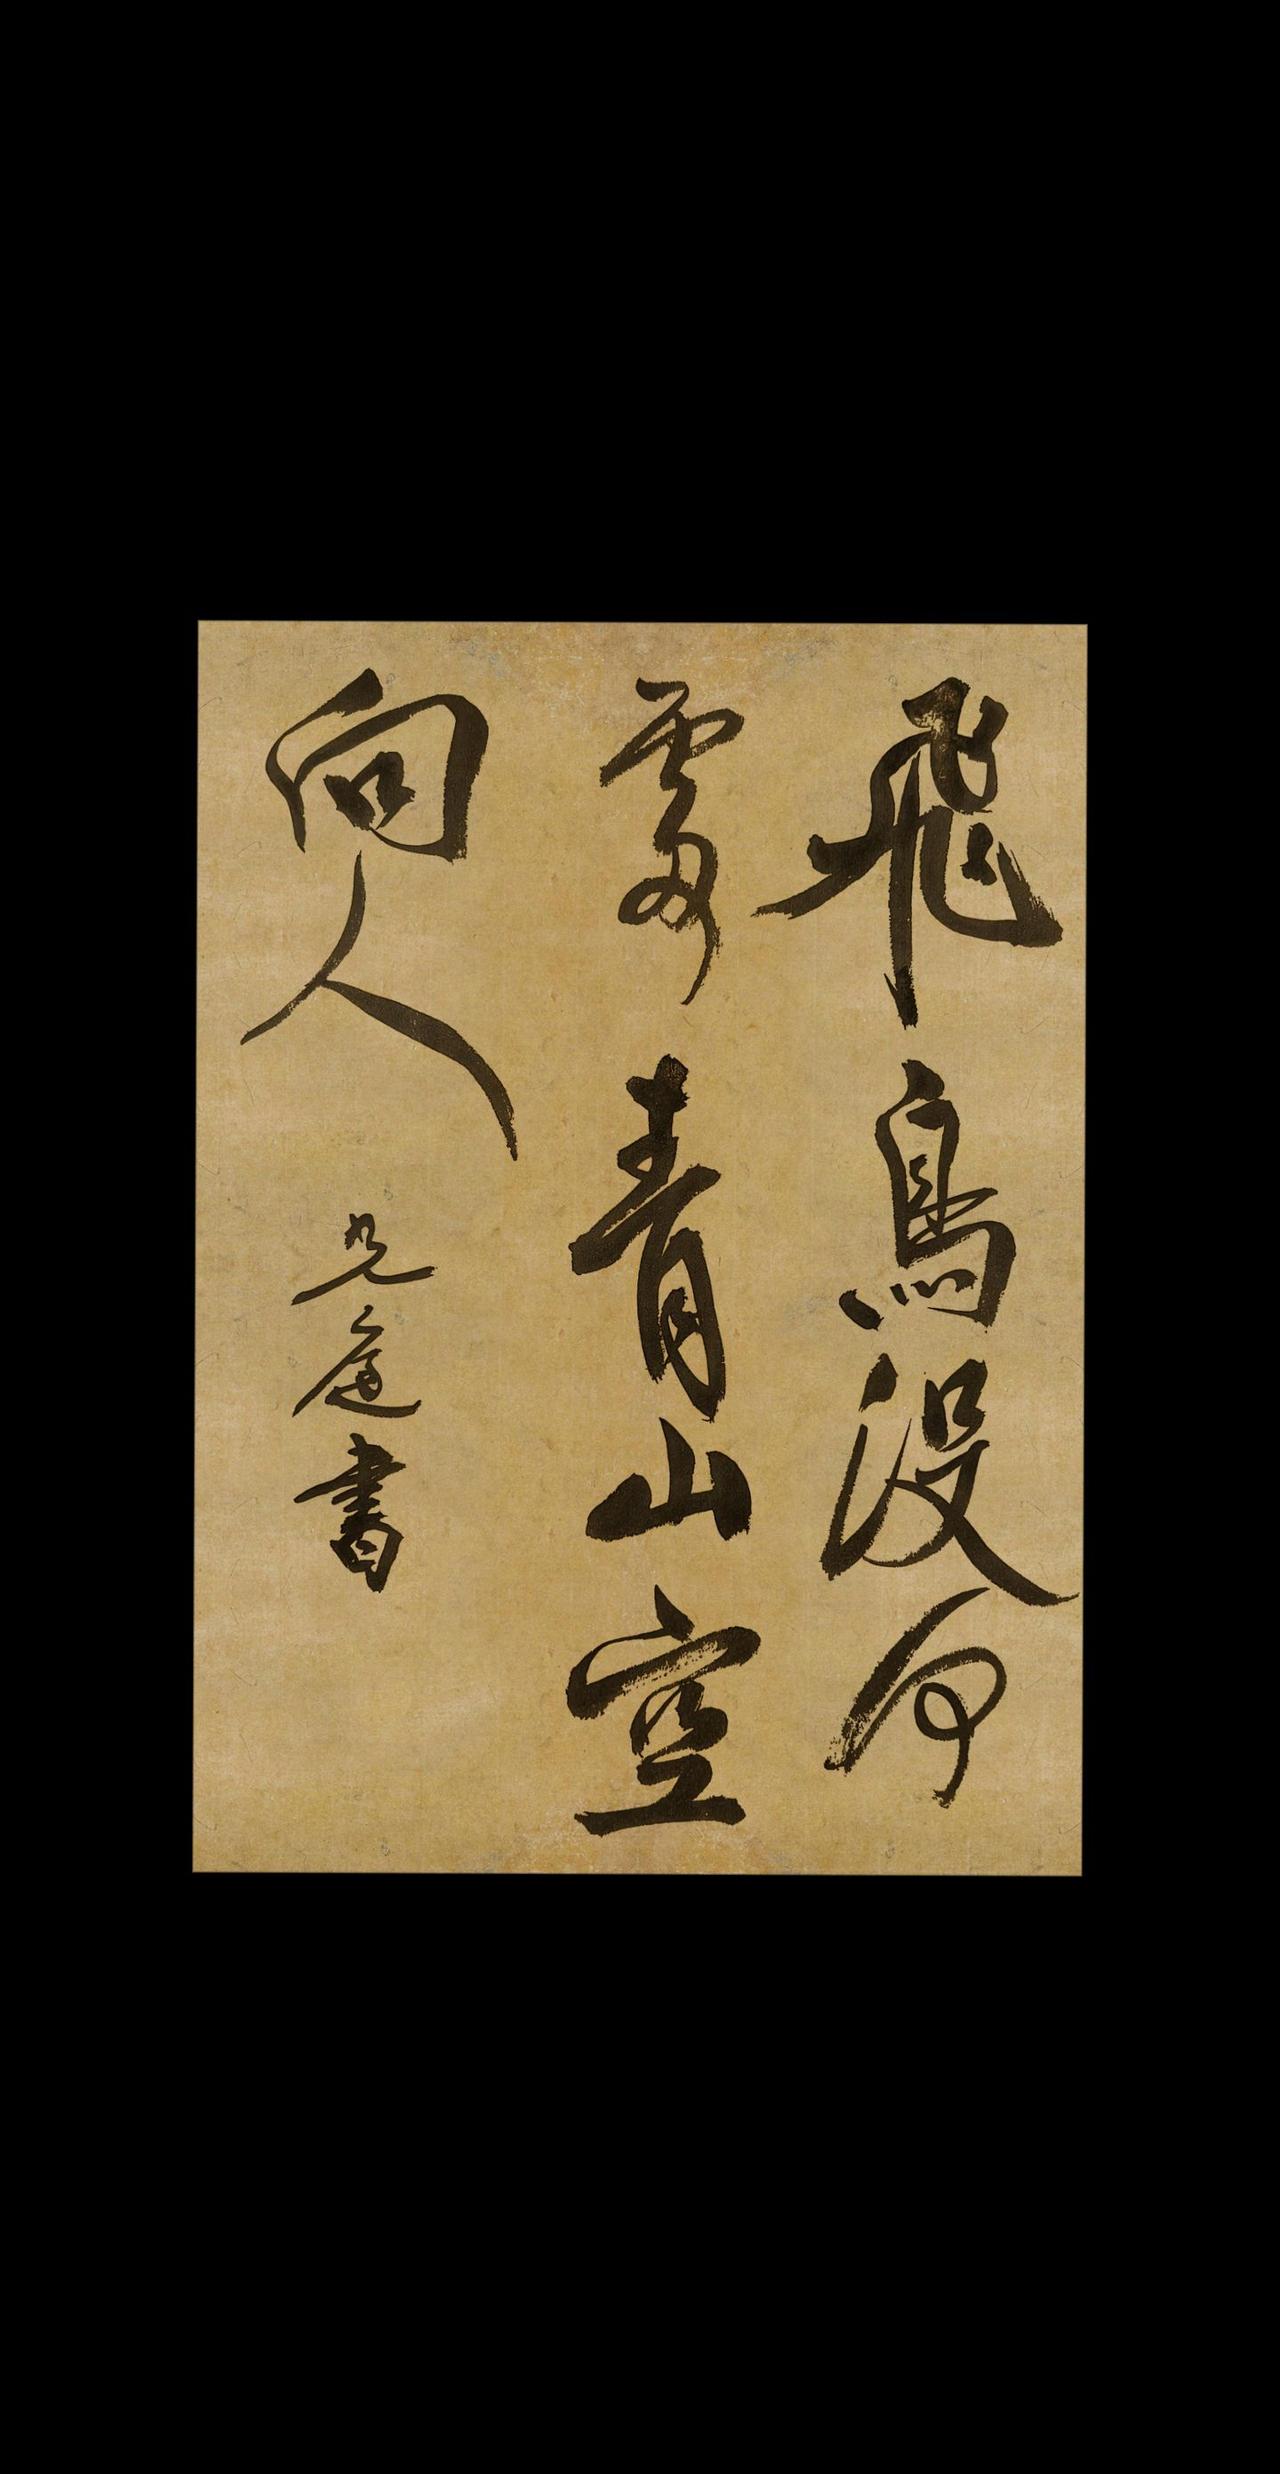 飛鳥沒何
處青山空
向人
光庭書